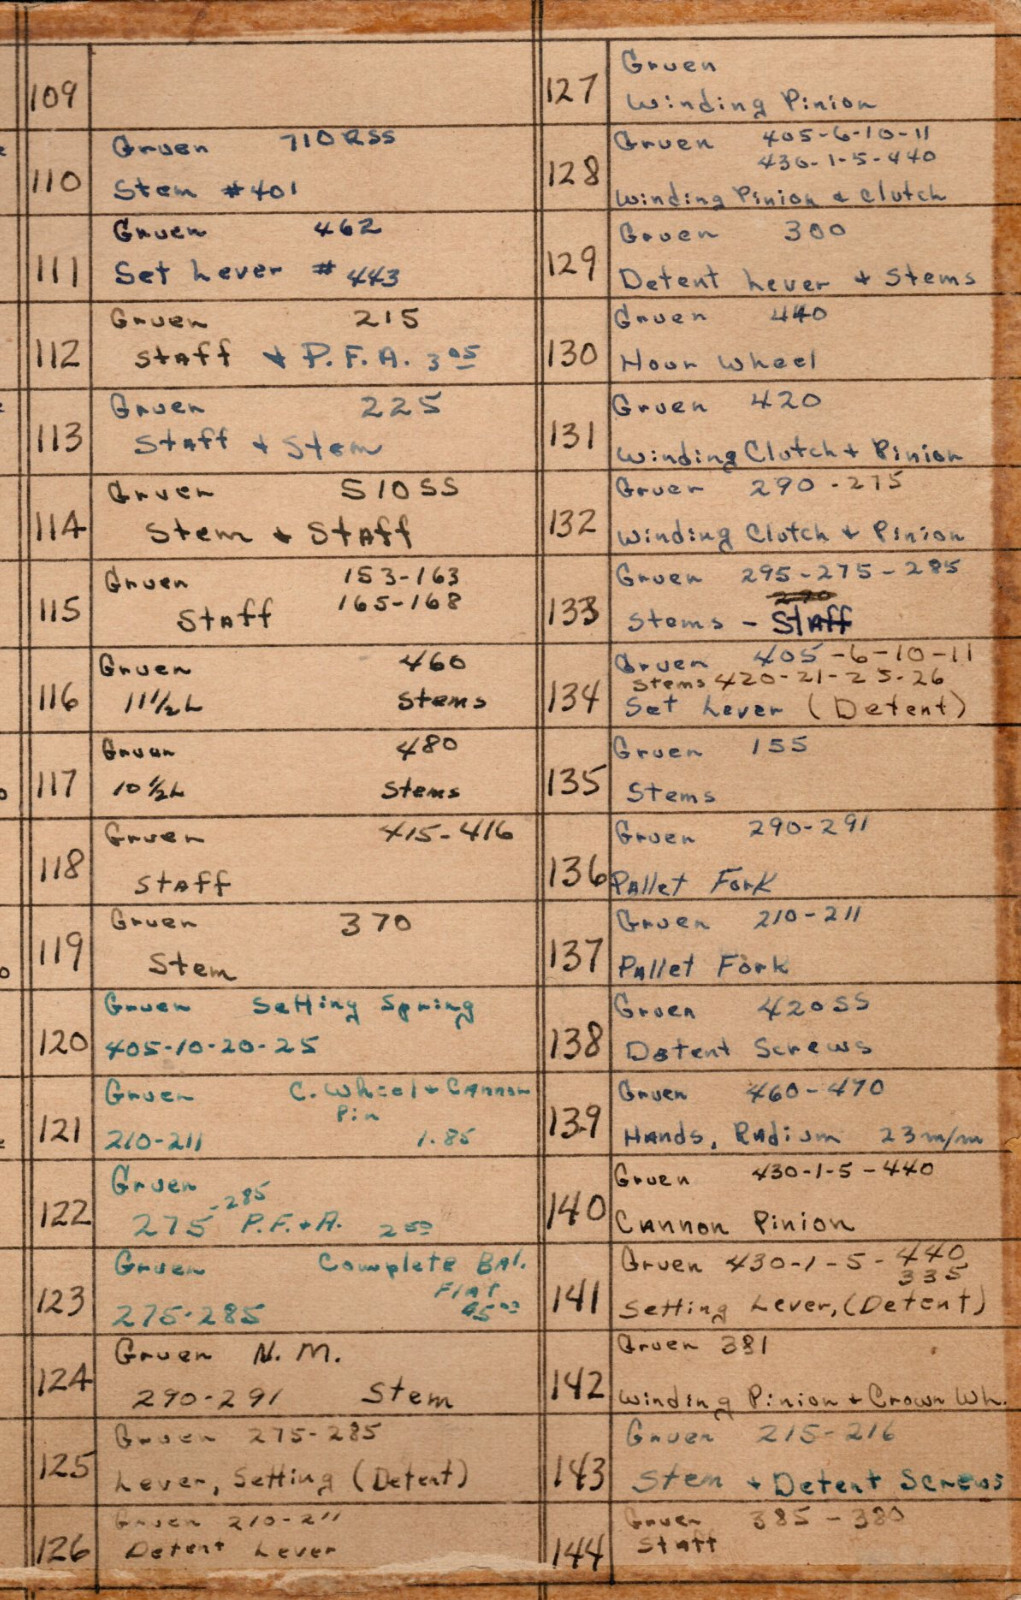 109
110
Gruen 710RSS
Stem #401
111
Gruen 462
Set Lever # 443
112
Gruen 215
Staff & P.F.A. 3 05
113
Gruen 225
Staff & Stem
114
Gruen 510SS
Stem & Staff
115
Gruen 153-163
165-168
Staff
116
Gruen 460
11 1/2 L Stems
117
Gruen 480
10 1/2 L Stems
118
Gruen 415-416
Staff
119
Gruen 370
Stem
120
Gruen Setting Spring
405-10-20-25
121
Gruen C. Wheel & Cannon
Pin
210-211 1.85
122
Gruen
-285
275 P.F.+A. 2 50
123
Gruen Complete Bal.
Flat
275-285
124
Gruen N.M.
290-291 Stem
125
Gruen 275-285
Lever, Setting (Detent)
126
Gruen 210-211
Detent Lever
127
Gruen
Winding Pinion
128
Gruen 405-6-10-11
430-1-5-440
Winding Pinion & Clutch
129
Gruen 300
Detent Lever & Stems
130
Gruen 440
Hour Wheel
131
Gruen 420
Winding Clutch & Pinion
132
Gruen 290-275
Winding Clutch & Pinion
133
Gruen 295-275-285
Stems - Staff
134
Gruen 405-6-10-11
Stems 420-21-25-26
Set Lever (Detent)
135
Gruen 155
Stems
136
Gruen 290-291
Pallet Fork
137
Gruen 210-211
Pallet Fork
138
Gruen 420SS
Detent Screws
139
Gruen 460-470
Hands, Radium 23 m/m
140
Gruen 430-1-5-440
Cannon Pinion
141
Gruen 430-1-5-440
335
Setting Lever, (Detent)
142
Gruen 381
Winding Pinion & Crown Wh.
143
Gruen 215-216
Stem & Detent Screws
144
Gruen 385-380
Staff